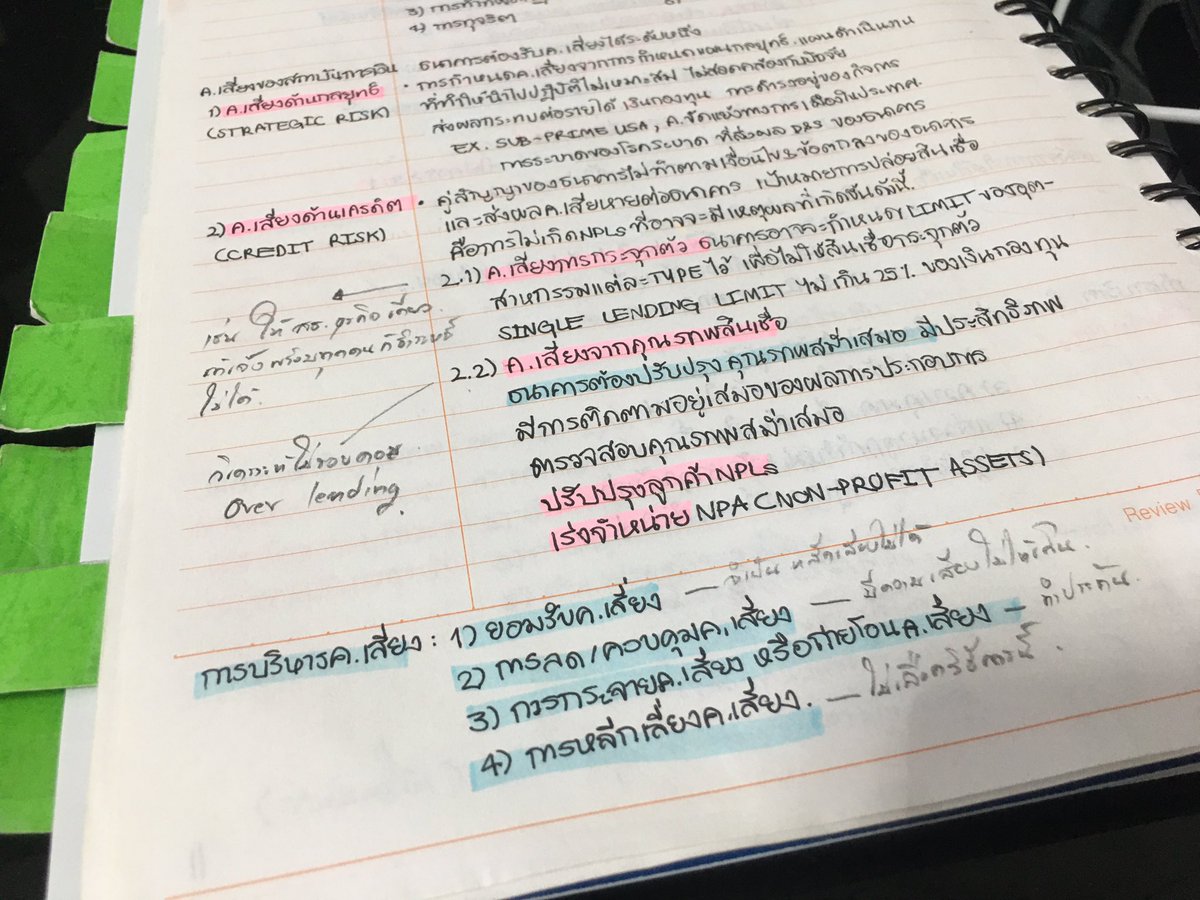 4) การทุจริต
ธนาคารต้องรับค.เสี่ยงได้ระดับหนึ่ง
ค.เสี่ยงของสถาบันการเงิน
1) ค.เสี่ยงด้านกลยุทธ์
(STRATEGIC RISK)
• การกำหนดค.เสี่ยงจากการกำหนดแผนกลยุทธ์, แผนดำเนินงาน
ที่ทำให้นำไปปฏิบัติไม่เหมาะสม ไม่สอดคล้องกับปัจจัย
ส่งผลกระทบต่อรายได้ เงินกองทุน การดำรงอยู่ของกิจการ
EX. SUB-PRIME USA, ค.ขัดแย้งทางการเมืองในประเทศ.
การระบาดของโรคระบาด ที่ส่งผล ของธนาคาร
2) ค.เสี่ยงด้านเครดิต
(CREDIT RISK)
• คู่สัญญาของธนาคารไม่ทำตามเงื่อนไข&ข้อตกลงของธนาคาร
และส่งผลค.เสียหายต่อธนาคาร เป้าหมายการปล่อยสินเชื่อ
คือการไม่เกิดNPLs ที่อาจจะมีเหตุผลที่เกิดขึ้นดังนี้.
2.1) ค.เสี่ยงการกระจุกตัว ธนาคารอาจจะกำหนด LIMIT ของอุต-
สาหกรรมแต่ละTYPE ไว้ เพื่อไม่ให้สินเชื่อกระจุกตัว
SINGLE LENDING LIMIT ไม่เกิน 25% ของเงินกองทุน
เช่น ให้ ธุรกิจเดียว
ถ้าเจ๊งพร้อมๆกัน
ไม่ได้.
2.2) ค.เสี่ยงจากคุณภาพสินเชื่อ
ธนาคารต้องปรับปรุงคุณภาพสม่ำเสมอ มีประสิทธิภาพ
มีการติดตามอยู่เสมอของผลการประกอบการ
ตรวจสอบคุณภาพสม่ำเสมอ
ปรับปรุงลูกค้าNPLs
เร่งจำหน่าย NPA (NON-PROFIT ASSETS)
วิเคราะห์ไม่รอบคอบ
Over lending.
Review
การบริหารค.เสี่ยง : 1) ยอมรับค.เสี่ยง — จำเป็น หลีกเลี่ยงไม่ได้
2) การลด/ควบคุมค.เสี่ยง — มีความเสี่ยงไม่ให้เกิน.
3) การกระจายค.เสี่ยง หรือถ่ายโอนค.เสี่ยง — ทำประกัน.
4) การหลีกเลี่ยงค.เสี่ยง. — ไม่เลือกวิธีการนี้.